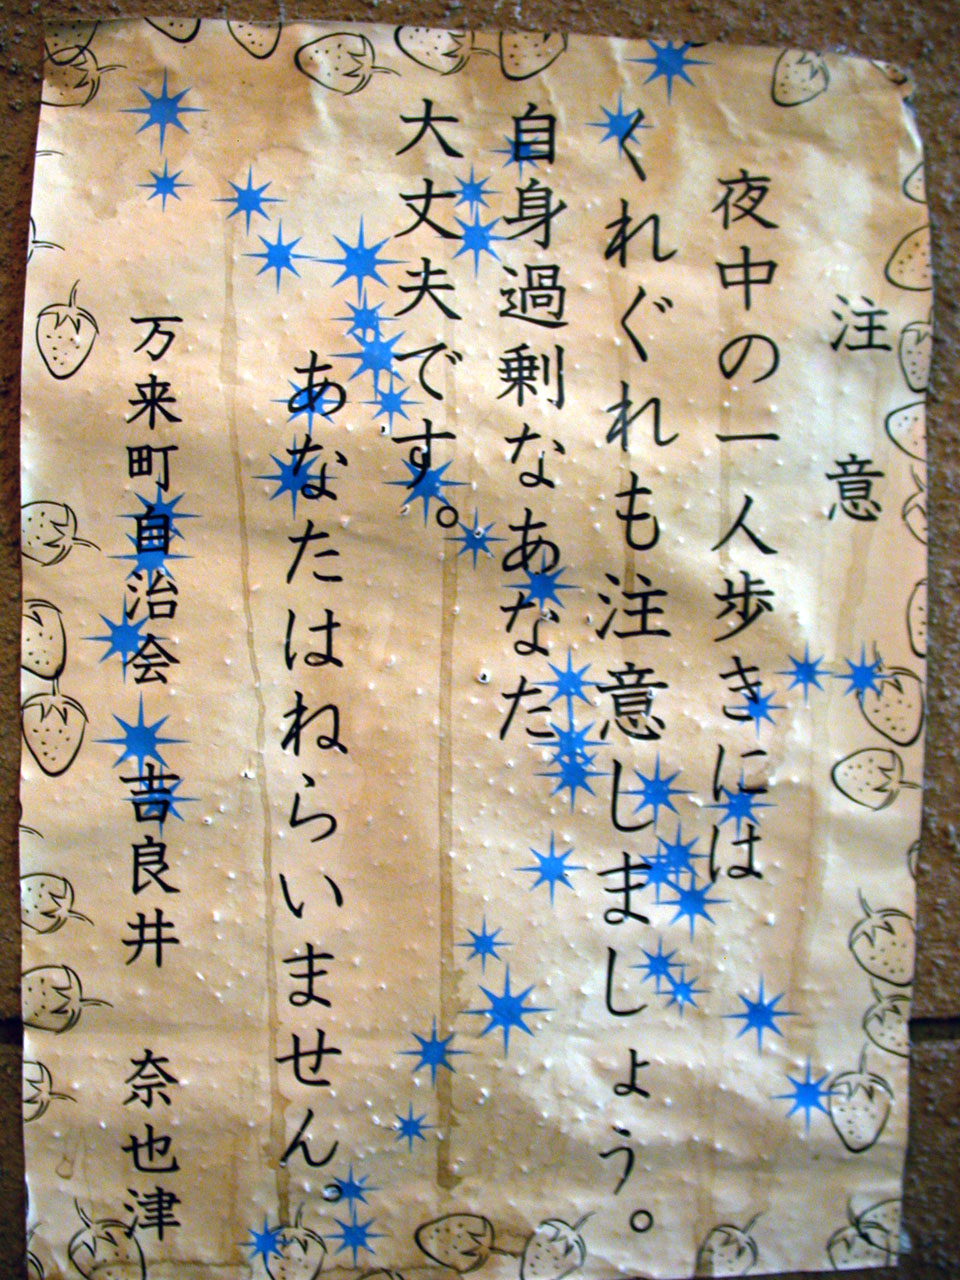 注意
夜中の一人歩きには
くれぐれも注意しましょう。
自身過剰なあなた
大丈夫です。
あなたはねらいません。
万来町自治会 吉良井 奈也津